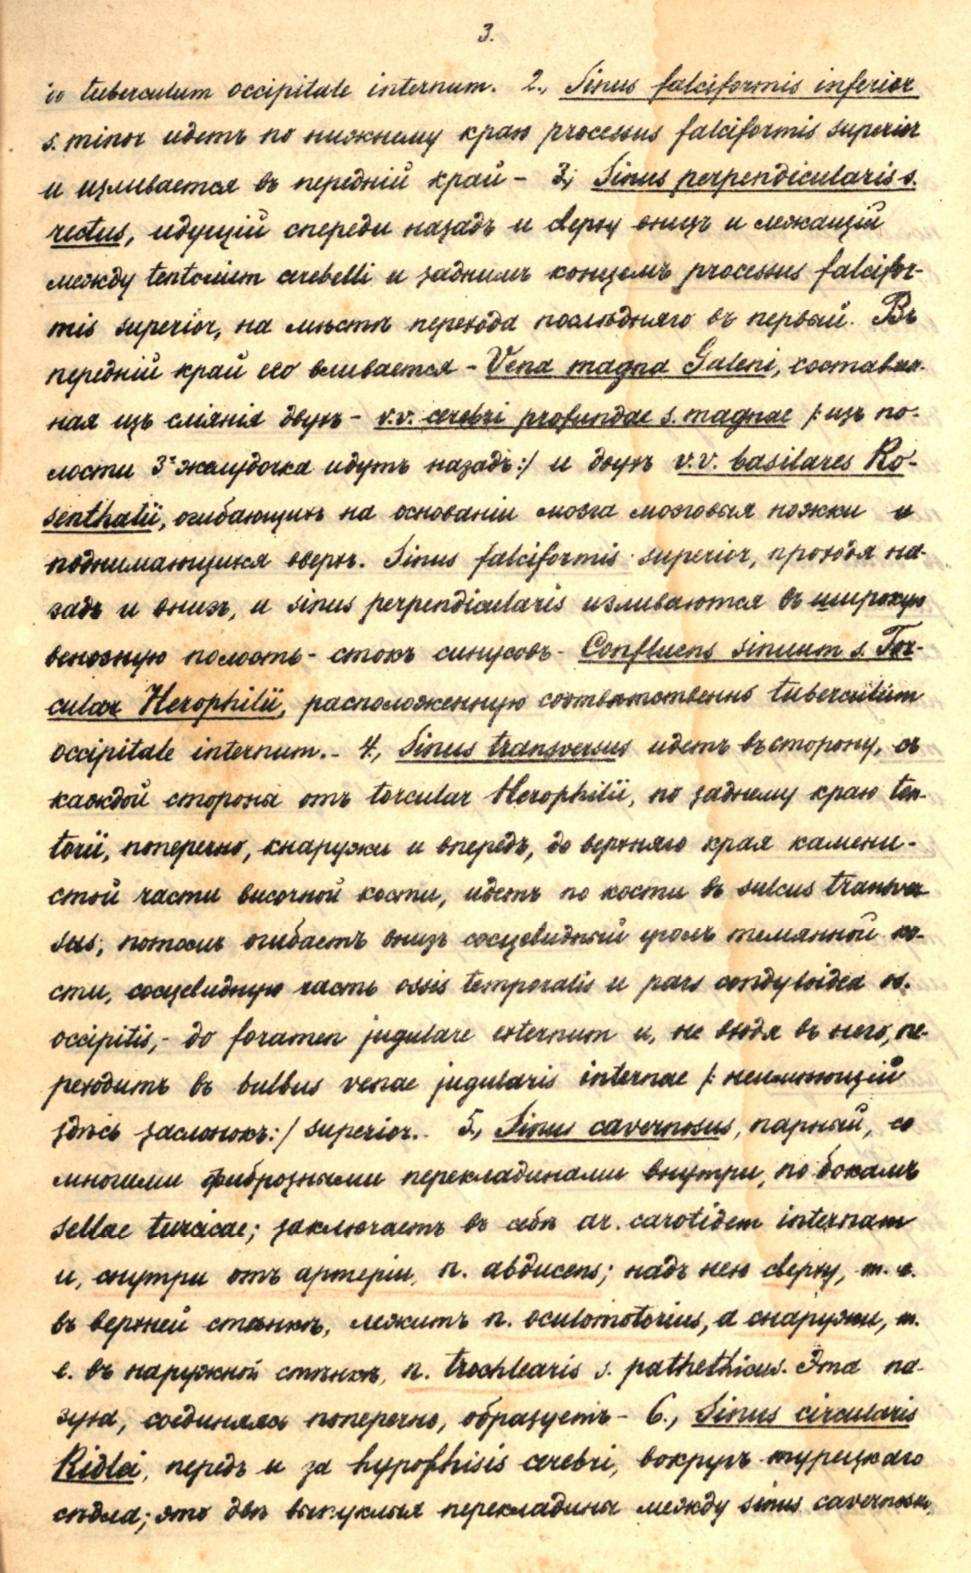 3.
до tuberculum occipitale internum. 2., Sinus falciformis inferior
s. minor идетъ по нижнему краю processus falciformis superior
и изливается въ передній край – 3., Sinus perpendicularis s.
rectus, идущій спереди назадъ и сверху внизъ и лежащій
между tentorium cerebelli и заднимъ концемъ processus falcifor-
mis superior, на мѣстѣ перехода послѣдняго въ первый. Въ
передній край его вливается – Vena magna Galeni, составлен-
ная изъ сліянія двухъ – v.v. cerebri profundae s. magnae /:изъ по-
лости 3го желудочка идутъ назадъ:/ и двухъ v.v. basilares Ro-
senthalii, огибающихъ на основаніи мозга мозговыя ножки и
поднимающихся вверхъ. Sinus falciformis superior, проходя на-
задъ и внизъ, и sinus perpendicularis изливаются въ широкую
венозную полость – стокъ синусовъ – Confluens sinuum s. Tor-
cular Herophilii, расположенную соотвѣтственно tuberculum
occipitale internum. – 4., Sinus transversus идетъ въ сторону, съ
каждой стороны отъ torcular Herophilii, по заднему краю ten-
torii, поперечно, кнаружи и впередъ, до верхняго края камени-
стой части височной кости, идетъ по кости въ sulcus transver
sus, потомъ огибаетъ внизъ сосцевидный уголъ темянной ко-
сти, сосцевидную часть ossis temporalis и pars condyloidea os.
occipitis, – до foramen jugulare externum и, не входя въ него, пе-
реходитъ въ bulbus venae jugularis internae /:неимѣющій
здѣсь заслонокъ:/ superior. – 5., Sinus cavernosus, парный, со
многими фиброзными перекладинами внутри, по бокамъ
sellae turcicae; заключаетъ въ себѣ ar. carotidem internam
и, снутри отъ артеріи, n. abducens; надъ нею сверху, т. е.
въ верхней стѣнкѣ, лежитъ n. oculomotorius, а снаружи, т.
е. въ наружной стѣнкѣ, n. trochlearis s. pathethicus. Эта па-
зуха, соединяясь поперечно, образуетъ – 6., Sinus circularis
Ridlei, передъ и за hypophisis cerebri, вокругъ турецкаго
сѣдла; это двѣ выпуклыя перекладины между sinus cavernosus,